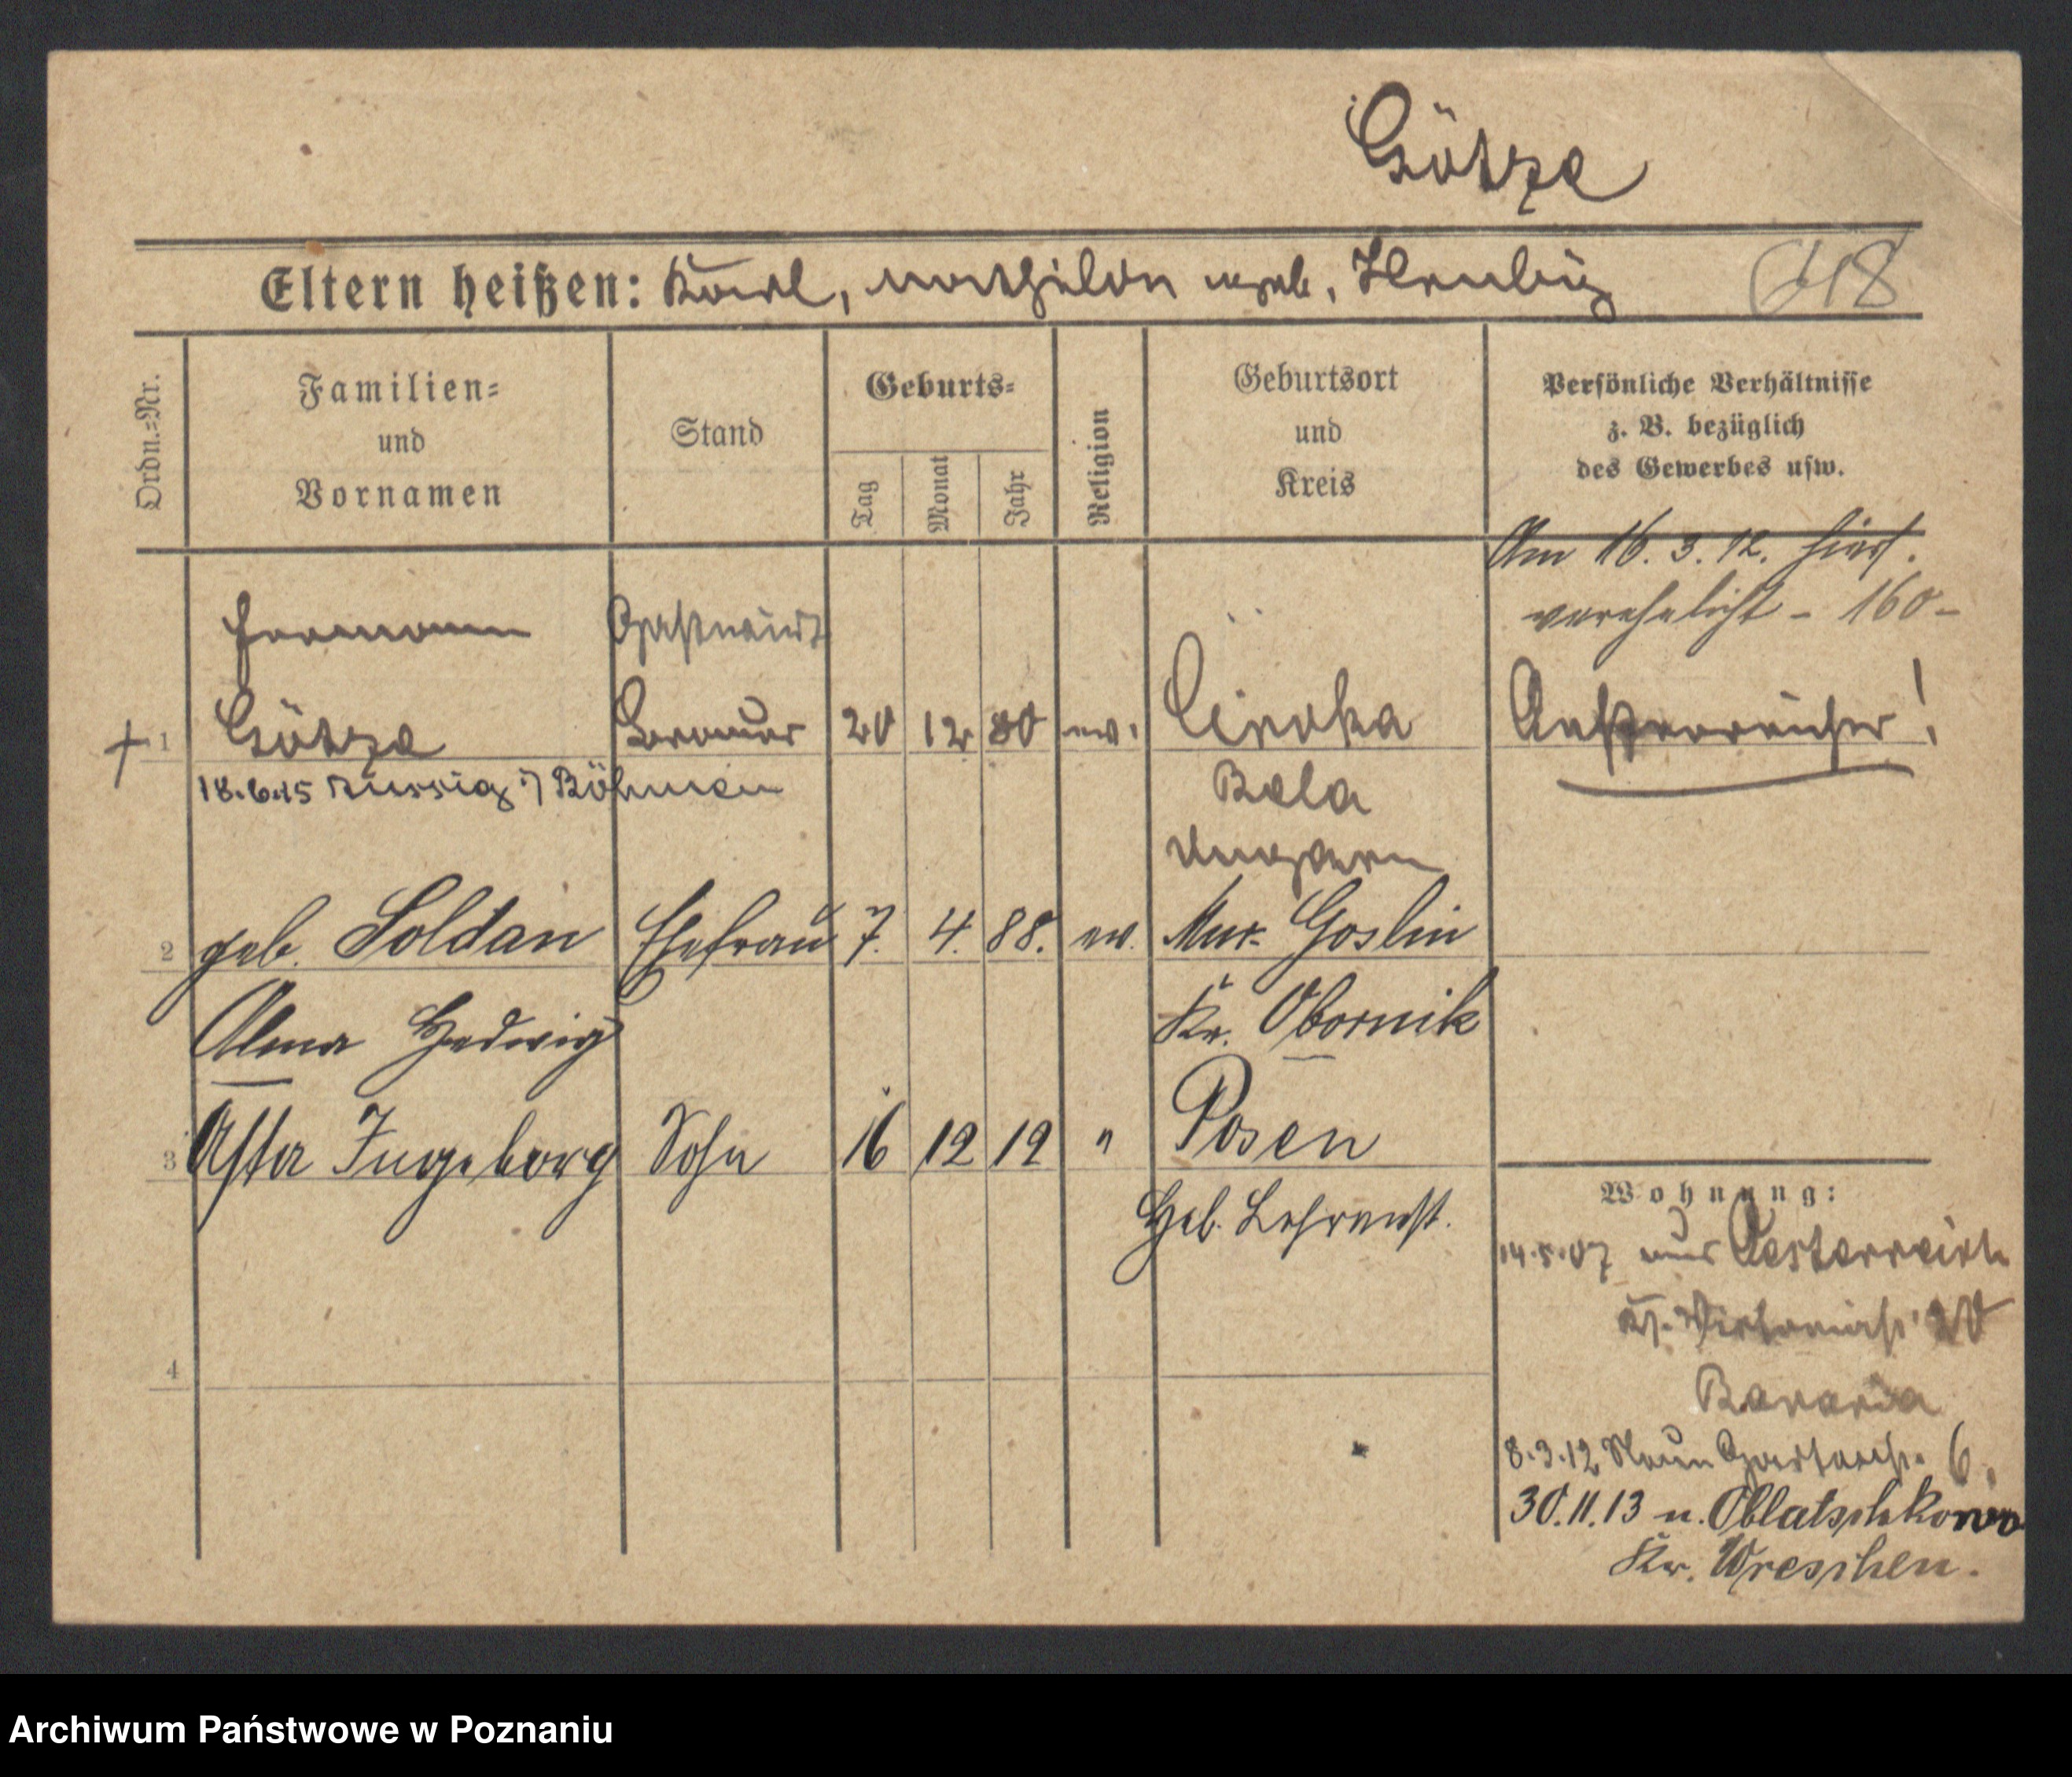 Götze
Eltern heißen: Karl, Mathilde geb. Hrubig
618
Ordn.-Nr.
Familien-
und
Vornamen
Stand
Geburts-
Tag
Monat
Jahr
Religion
Geburtsort
und
Kreis
Persönliche Verhältnisse
z. B. bezüglich
des Gewerbes usw.
Am 16. 3. 12. hier
verehelicht - 160 -
Hermann Gastwirt
1 Götze Brauer 20 12 80 ev. Österreicher!
18.6.15 Aussig i/ Böhmen Bela
Ungarn
2 geb. Soldan Ehefrau 7. 4. 88. ev. Mur. Goslin
Alma Hedwig Kr. Obornik
3 Asta Ingeborg 16 12 12 " Posen
Heb. Lehranst.
Wohnung:
14.5.07 aus Oesterreich
20
Bavaria
8.3.12 Neue Gartenstr. 6.
30.11.13 n. Oblatschkowo
Kr. Wreschen.
4
Archiwum Państwowe w Poznaniu